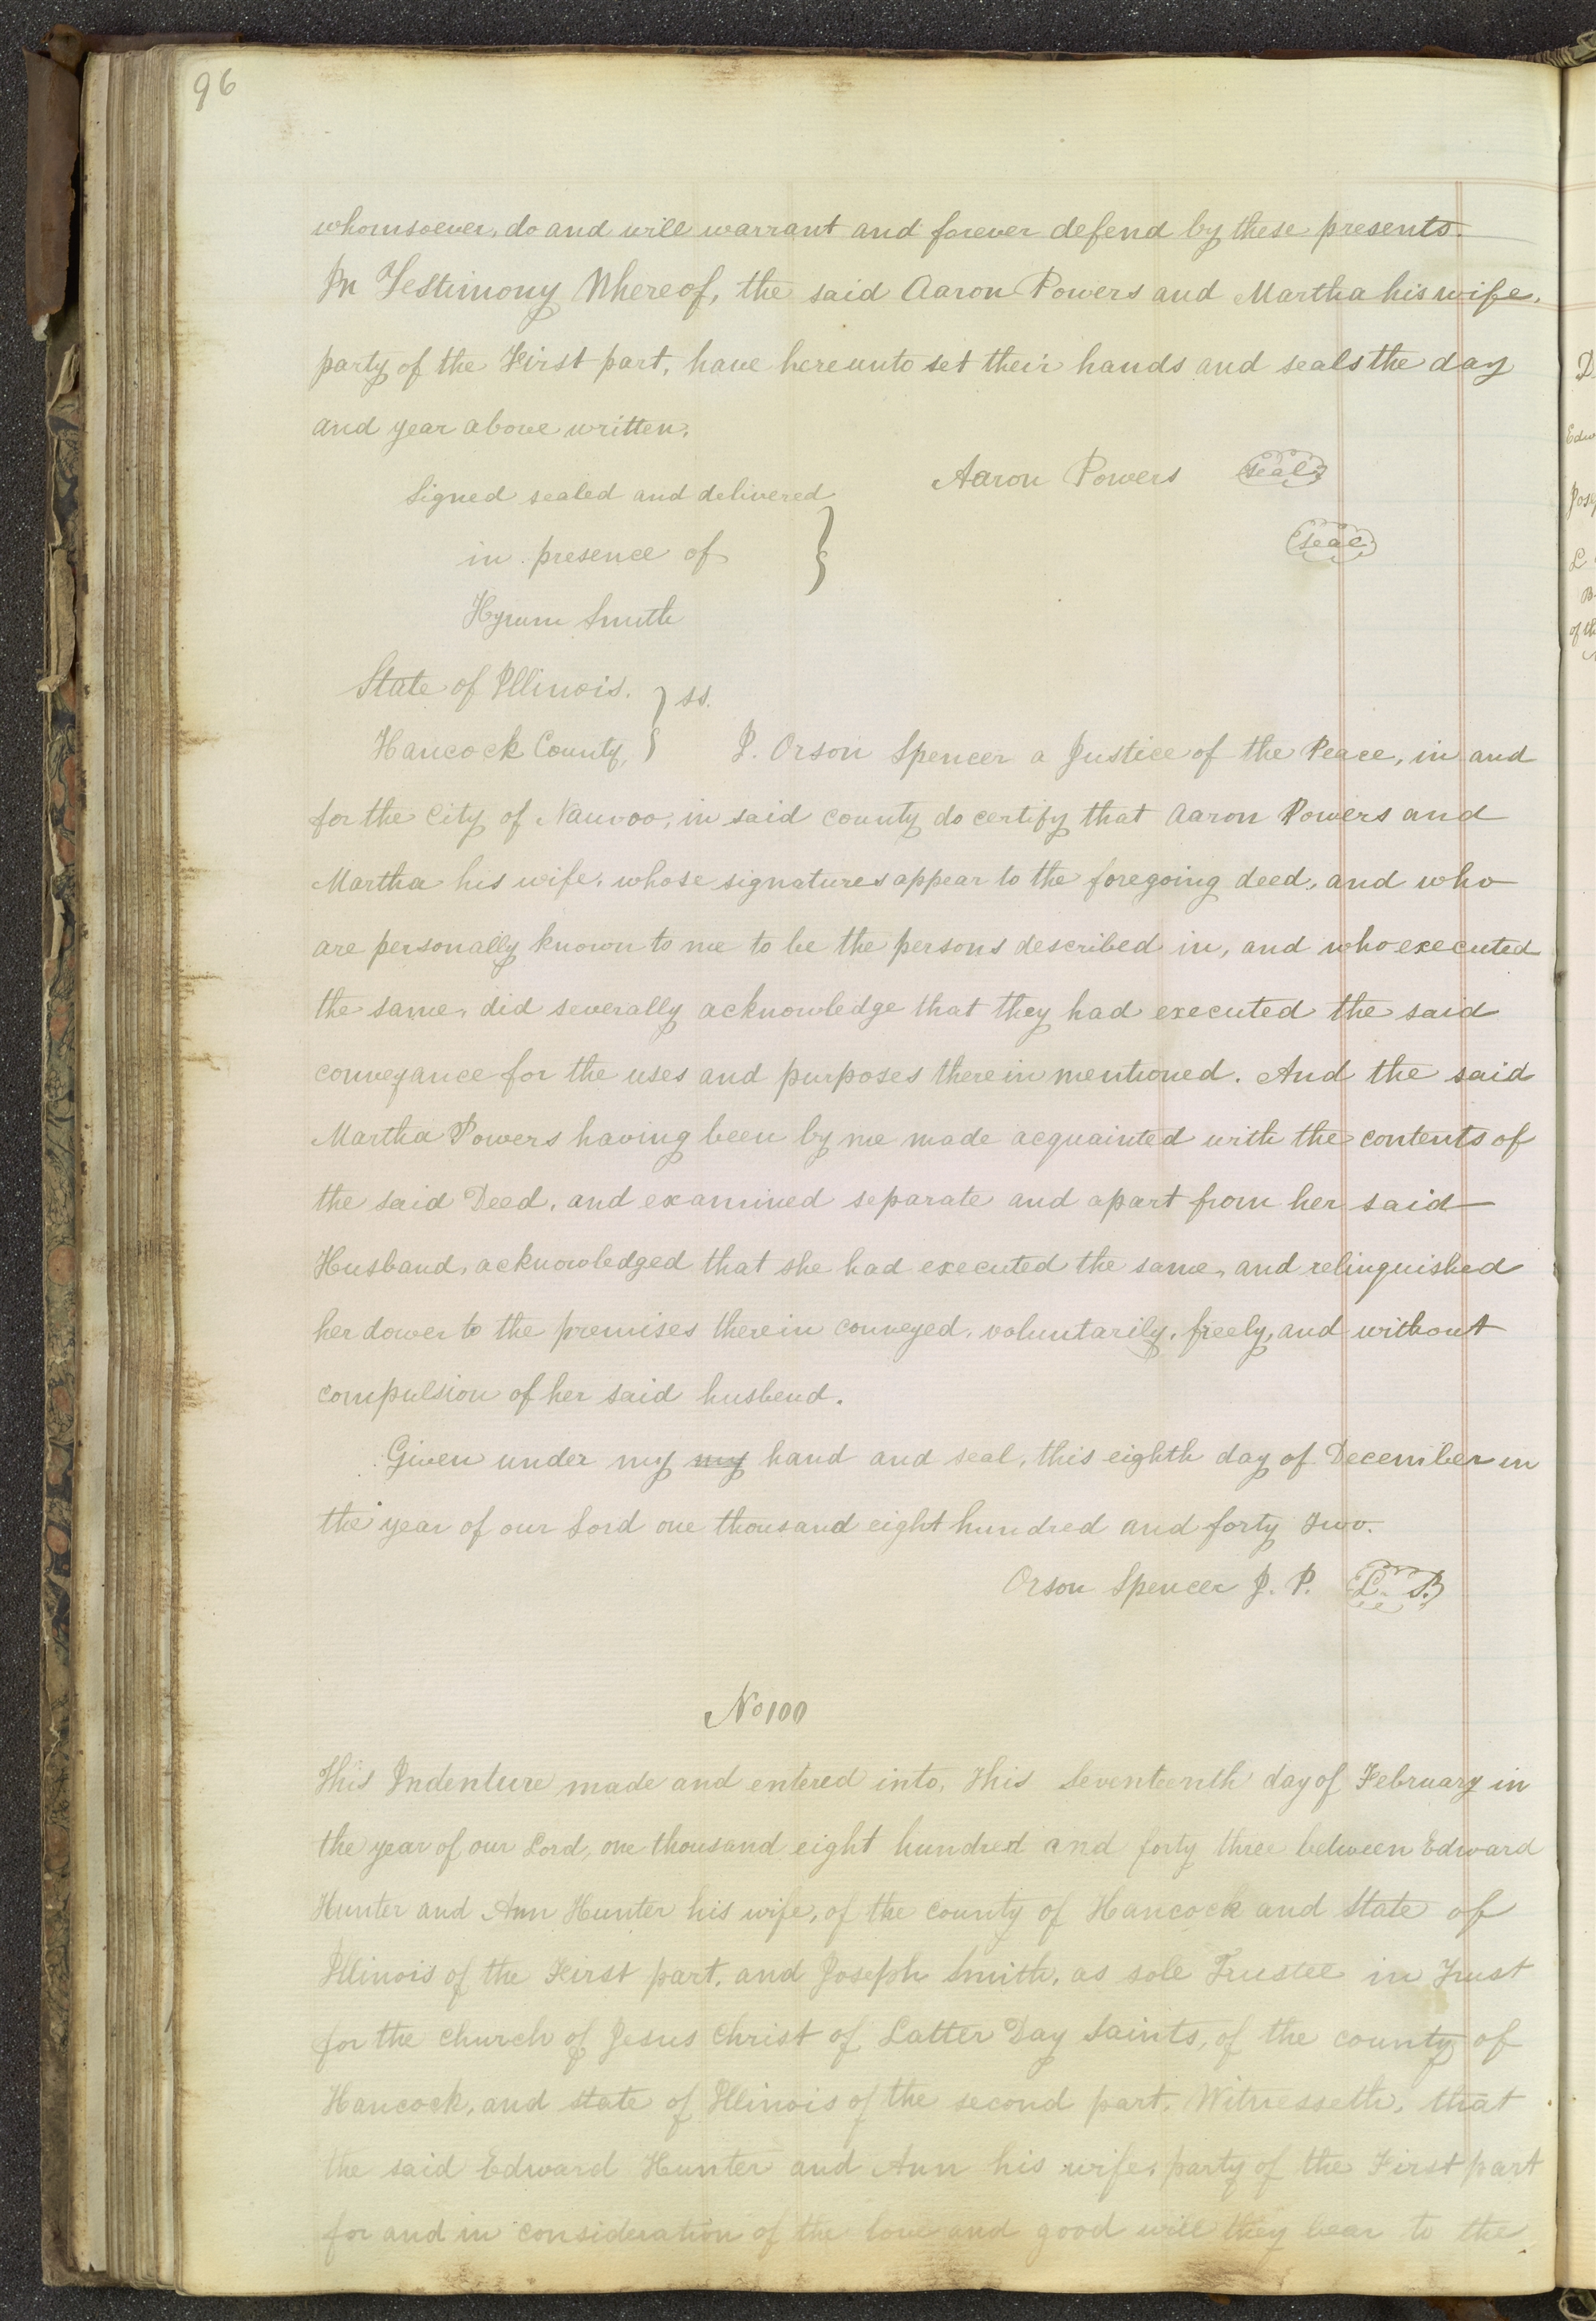 96
whomsoever, do and will warrant and forever defend by these presents.
In Testimony Whereof, the said Aaron Powers and Martha his wife,
party of the First part, have hereunto set their hands and seals the day
and year above written.
Aaron Powers seal
Signed sealed and delivered
seal
in presence of
Hyrum Smith
State of Illinois. } ss.
Hancock County, } I. Orson Spencer a Justice of the Peace, in and
for the City of Nauvoo, in said county do certify that Aaron Powers and
Martha his wife, whose signatures appear to the foregoing deed, and who
are personally known to me to be the persons described in, and who executed
the same, did severally acknowledge that they had executed the said
conveyance for the uses and purposes therein mentioned. And the said
Martha Powers having been by me made acquainted with the contents of
the said Deed, and examined separate and apart from her said
Husband, acknowledged that she had executed the same, and relinquished
her dower to the premises therein conveyed, voluntarily, freely, and without
compulsion of her said husbend.
Given under my my hand and seal, this eighth day of December in
the year of our Lord one thousand eight hundred and forty two.
Orson Spencer J. P. L. S.
No 100
This Indenture made and entered into, This Seventeenth day of February in
the year of our Lord, one thousand eight hundred and forty three between Edward
Hunter and Ann Hunter his wife, of the county of Hancock and State of
Illinois of the First part, and Joseph Smith, as sole Trustee in Trust
for the church of Jesus Christ of Latter Day Saints, of the county of
Hancock, and state of Illinois of the second part, Witnesseth, that
the said Edward Hunter and Ann his wife, party of the First part
for and in consideration of the love and good will they bear to the